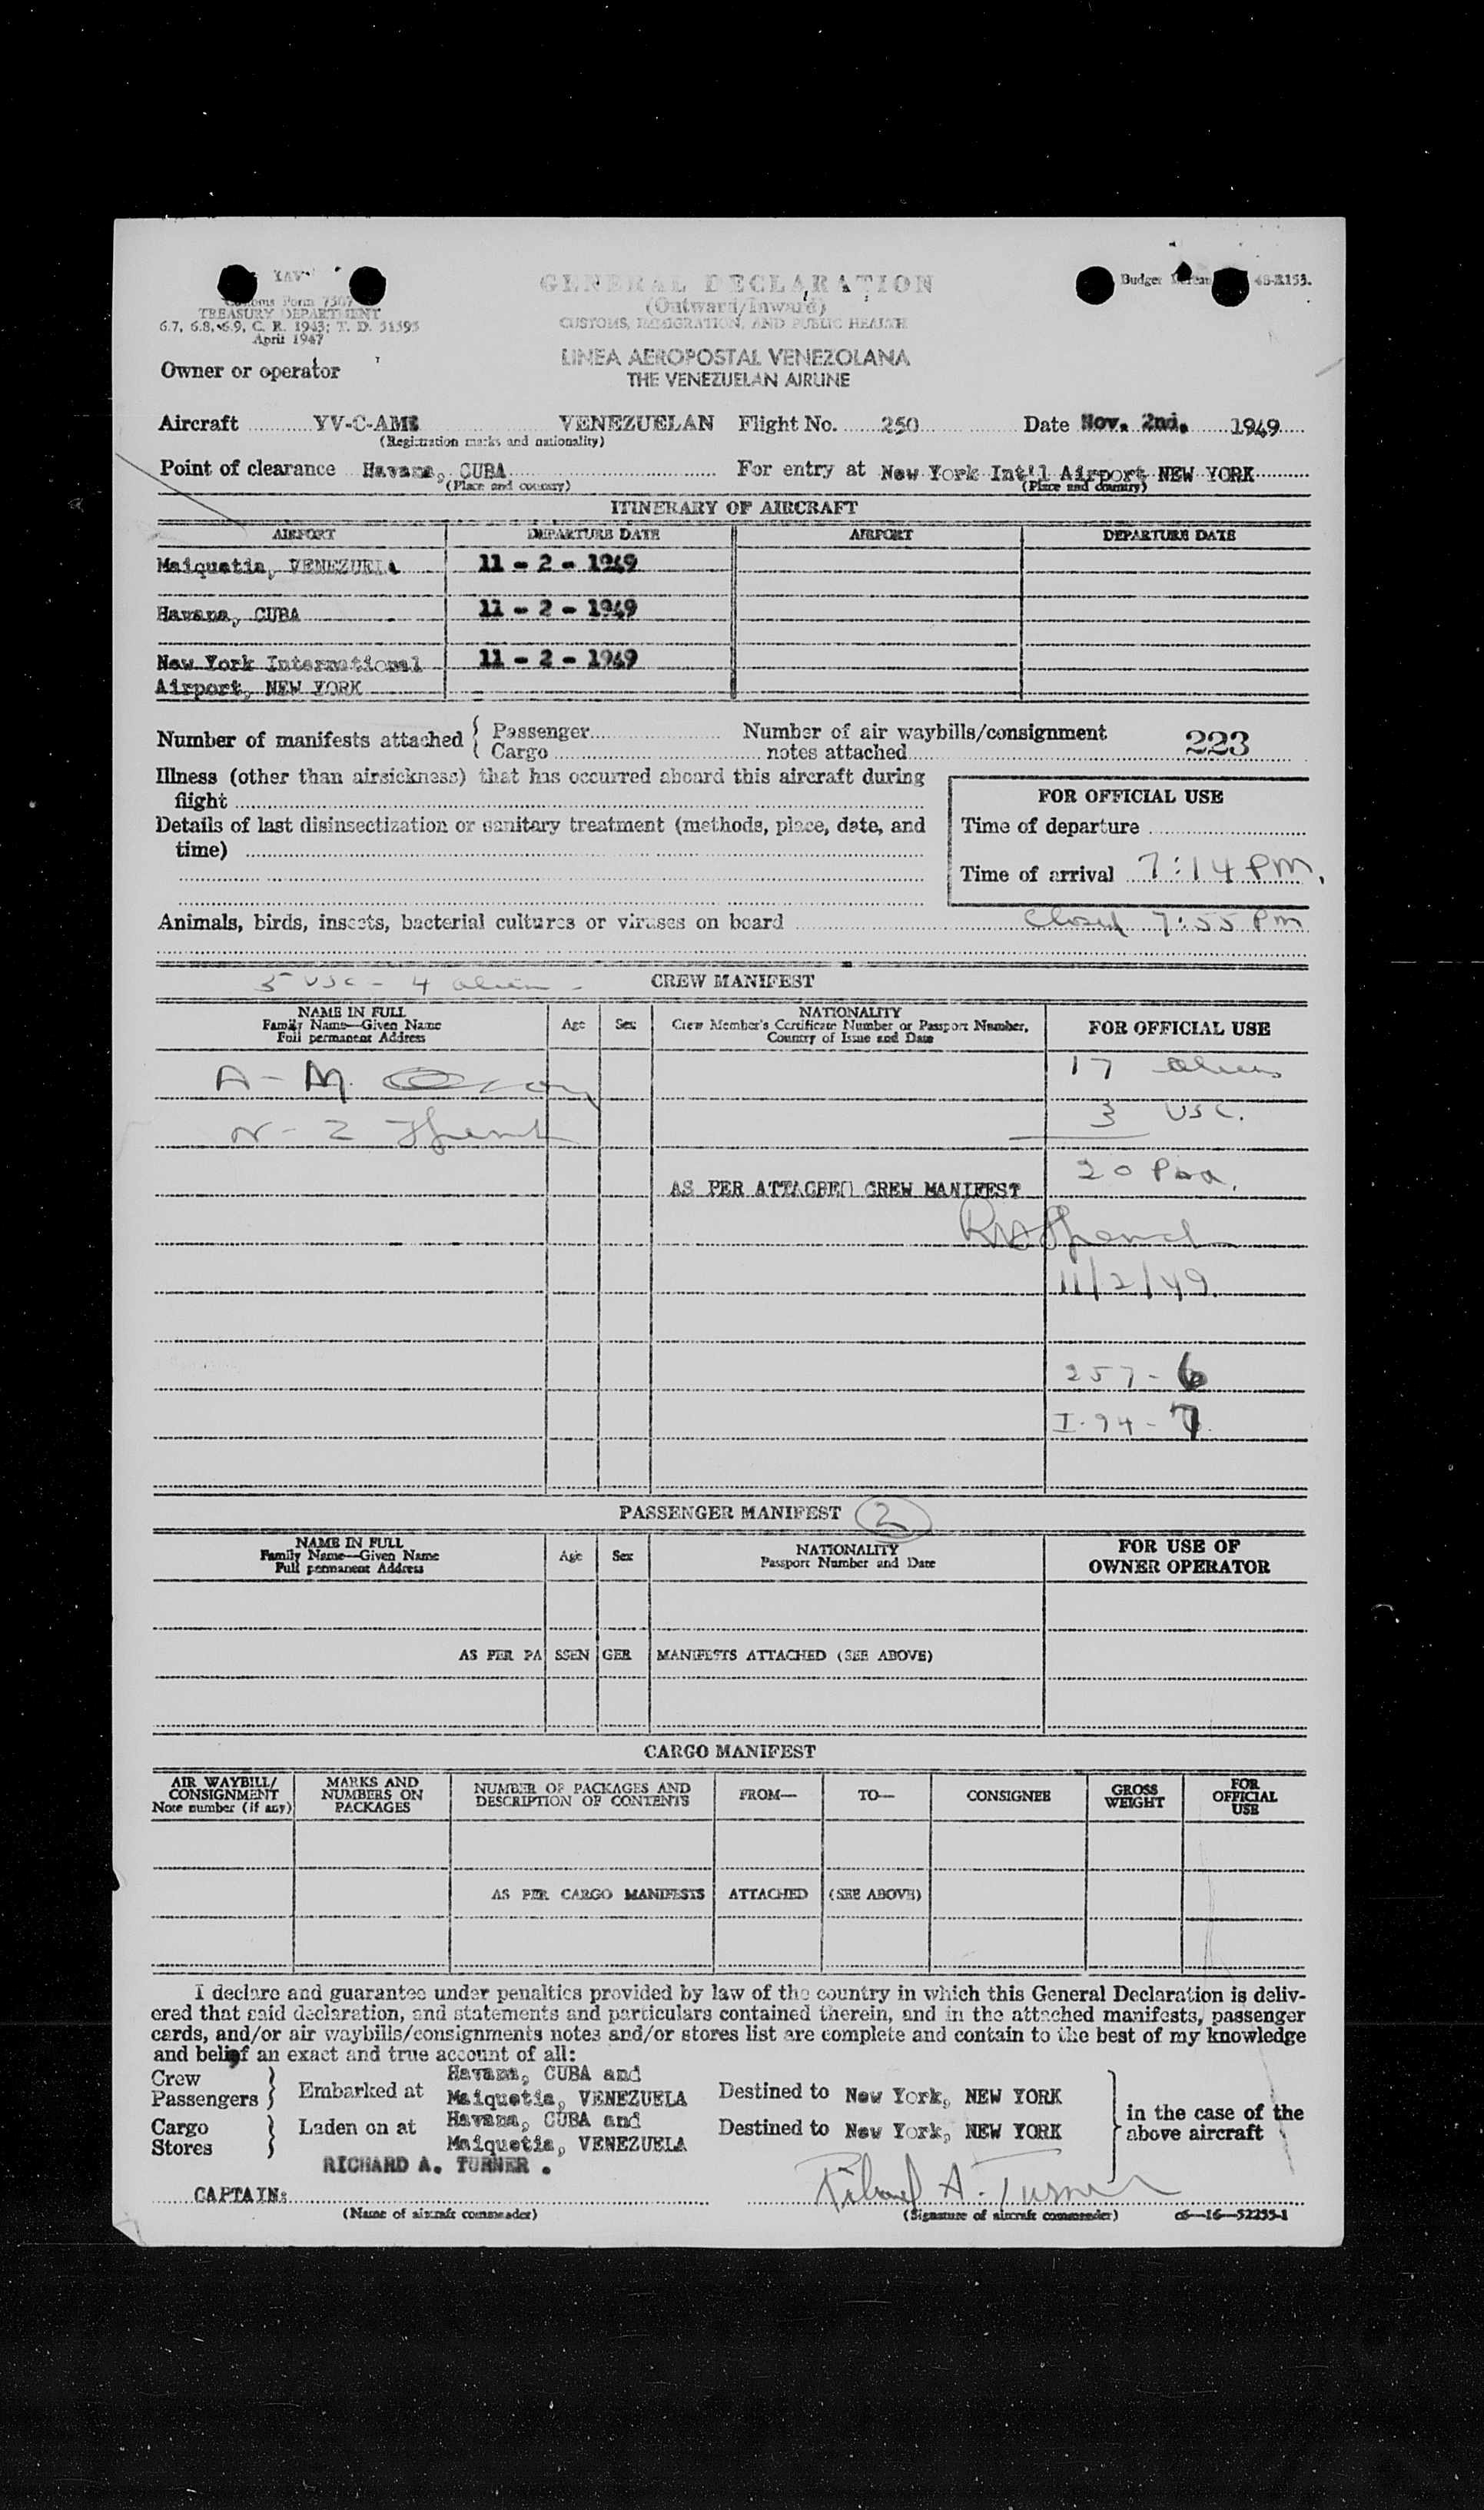 GENERAL DECLARATION
(Outward/Inward)
CUSTOMS, IMMIGRATION, AND PUBLIC HEALTH
Customs Form 7507
TREASURY DEPARTMENT
6.7, 6.8, 6.9, C. R. 1943; T. D. 51595
April 1947
Budget Bureau 48-R153.
LINEA AEROPOSTAL VENEZOLANA
THE VENEZUELAN AIRLINE
Owner or operator
Aircraft YV-C-AME VENEZUELAN Flight No. 250 Date Nov. 2nd. 1949
(Registration marks and nationality)
Point of clearance Havana, CUBA For entry at New York Int'l Airport NEW YORK
(Place and country) (Place and country)
ITINERARY OF AIRCRAFT
AIRPORT DEPARTURE DATE AIRPORT DEPARTURE DATE
Maiquetia, VENEZUELA 11 - 2 - 1949
Havana, CUBA 11 - 2 - 1949
New York International 11 - 2 - 1949
Airport, NEW YORK
Number of manifests attached { Passenger Number of air waybills/consignment
Cargo notes attached 223
Illness (other than airsickness) that has occurred aboard this aircraft during
flight
FOR OFFICIAL USE
Details of last disinsectization or sanitary treatment (methods, place, date, and
time)
Time of departure
Time of arrival 7:14 PM.
Animals, birds, insects, bacterial cultures or viruses on board Closed 7:55 PM
5 USC - 4 alien - CREW MANIFEST
NAME IN FULL
Family Name—Given Name
Full permanent Address
Age Sex
NATIONALITY
Crew Member's Certificate Number or Passport Number,
Country of Issue and Date
FOR OFFICIAL USE
A - M. 17 aliens
N - 2 3 USC.
AS PER ATTACHED CREW MANIFEST 20 Pax.
11/2/49
257 - 6
I-94 - 7
PASSENGER MANIFEST 2
NAME IN FULL
Family Name—Given Name
Full permanent Address
Age Sex
NATIONALITY
Passport Number and Date
FOR USE OF
OWNER OPERATOR
AS PER PASSENGER MANIFESTS ATTACHED (SEE ABOVE)
CARGO MANIFEST
AIR WAYBILL/
CONSIGNMENT
Note number (if any)
MARKS AND
NUMBERS ON
PACKAGES
NUMBER OF PACKAGES AND
DESCRIPTION OF CONTENTS
FROM— TO— CONSIGNEE
GROSS
WEIGHT
FOR
OFFICIAL
USE
AS PER CARGO MANIFESTS ATTACHED (SEE ABOVE)
I declare and guarantee under penalties provided by law of the country in which this General Declaration is deliv-
ered that said declaration, and statements and particulars contained therein, and in the attached manifests, passenger
cards, and/or air waybills/consignments notes and/or stores list are complete and contain to the best of my knowledge
and belief an exact and true account of all:
Crew
Passengers } Embarked at Havana, CUBA and
Maiquetia, VENEZUELA Destined to New York, NEW YORK
Cargo
Stores } Laden on at Havana, CUBA and
Maiquetia, VENEZUELA Destined to New York, NEW YORK
} in the case of the
above aircraft
RICHARD A. TURNER .
CAPTAIN: Richard A. Turner
(Name of aircraft commander) (Signature of aircraft commander) c6—16—52255-1